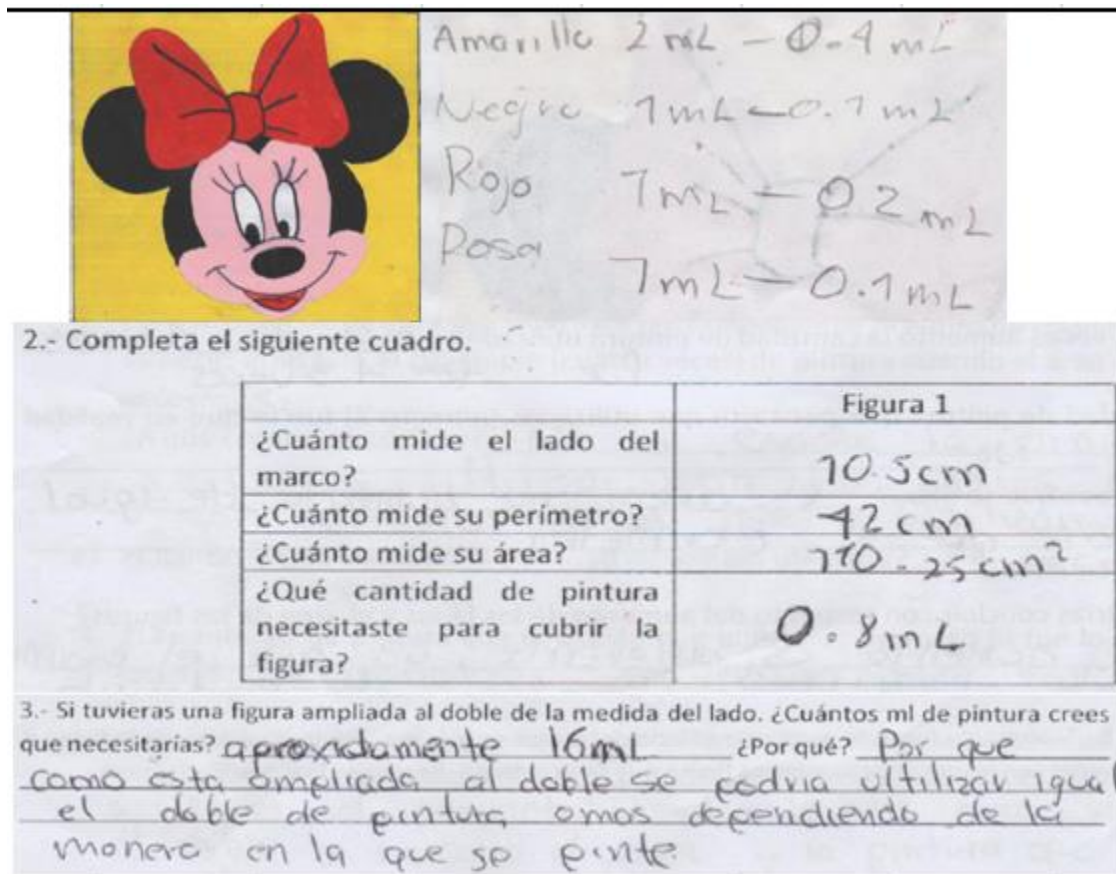 Amarillo 2 mL - 0.4 mL
Negro 1 mL - 0.1 mL
Rojo 1 mL - 0.2 mL
Rosa 1 mL - 0.1 mL
2.- Completa el siguiente cuadro.
Figura 1
¿Cuánto mide el lado del marco? 10.5 cm
¿Cuánto mide su perímetro? 42 cm
¿Cuánto mide su área? 110.25 cm²
¿Qué cantidad de pintura necesitaste para cubrir la figura? 0.8 mL
3.- Si tuvieras una figura ampliada al doble de la medida del lado. ¿Cuántos ml de pintura crees
que necesitarías? aproxidamente 16 mL ¿Por qué? Por que
como esta ampliada al doble se podria ultilizar igual
el doble de pintura o mas dependiendo de la
manera en la que se pinte